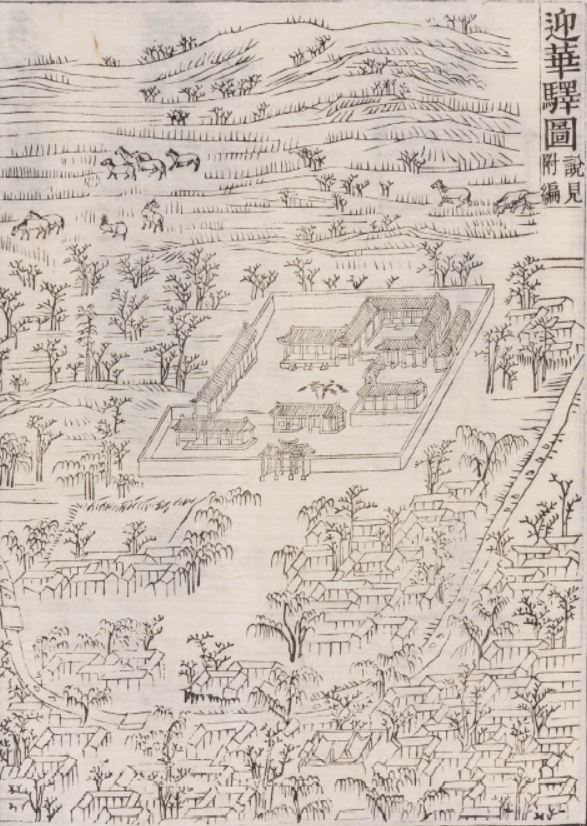 迎華驛圖
說見
附編